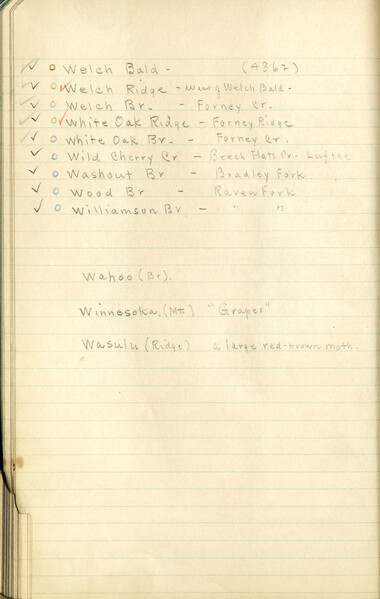 Welch Bald - (4862)
Welch Ridge - W. of Welch Bald -
Welch Br. - Forney Cr.
White Oak Ridge - Forney Ridge
White Oak Br. - Forney Cr.
Wild Cherry Cr - Beech Flats Pr. Luftee
Washout Br - Bradley Fork
Wood Br - Raven Fork
Williamson Br - " "
Wahoo (Br).
Winnosoka, (Mt.) "Grapes"
Wasulu (Ridge) a large red-brown moth.